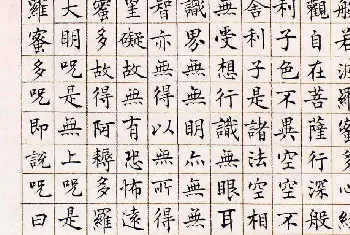 般若波羅蜜多心經
觀自在菩薩行深般
利子色不異空空不
舍利子是諸法空相
無受想行識無眼耳
識界無無明亦無無
智亦無得以無所得
罣礙故無有恐怖遠
蜜多故得阿耨多羅
大明呪是無上呪是
羅蜜多呪即説呪曰